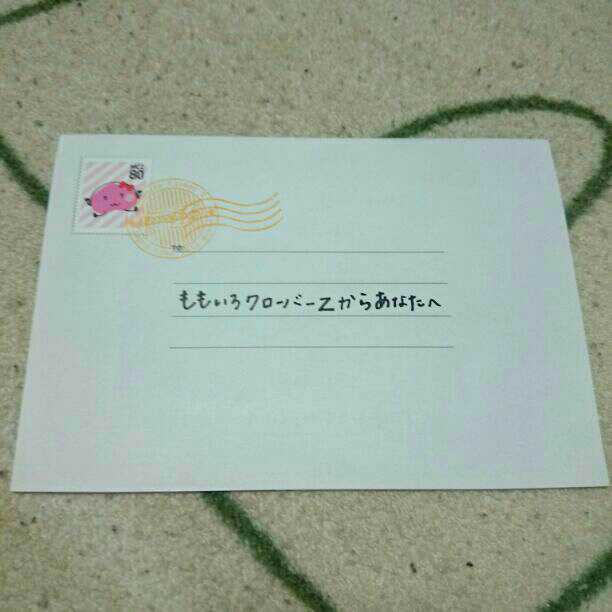 80
TO:
ももいろクローバーZからあなたへ